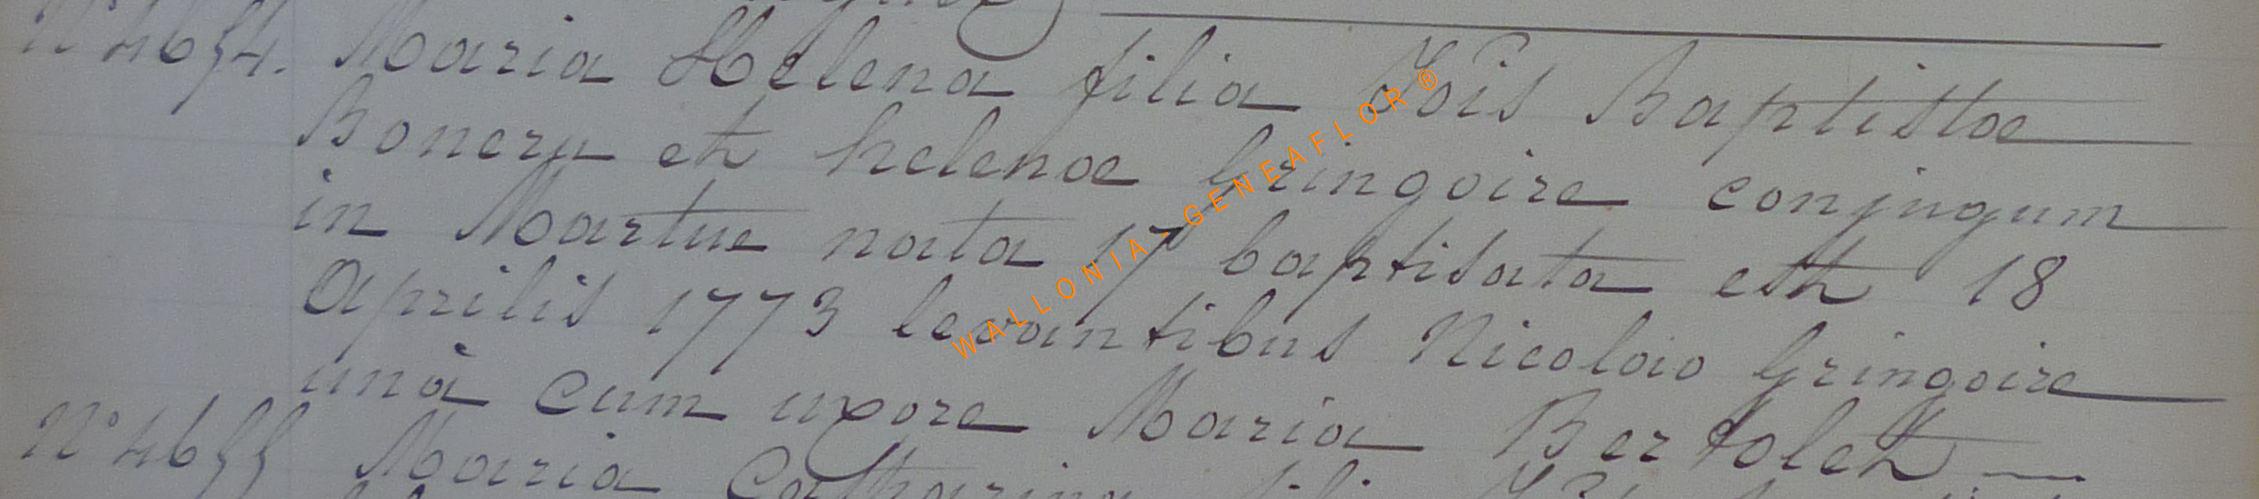 N° 4654. Maria Helena filia Jois Baptistae
Bonery et helenae Gringoire conjugum
in Martue nata 17 baptisata est 18
Aprilis 1773 levantibus Nicolao Gringoire
unà cum uxore Maria Bertolet
N° 4655 Maria Catharina
WALLONIA-GENEAFLOR®